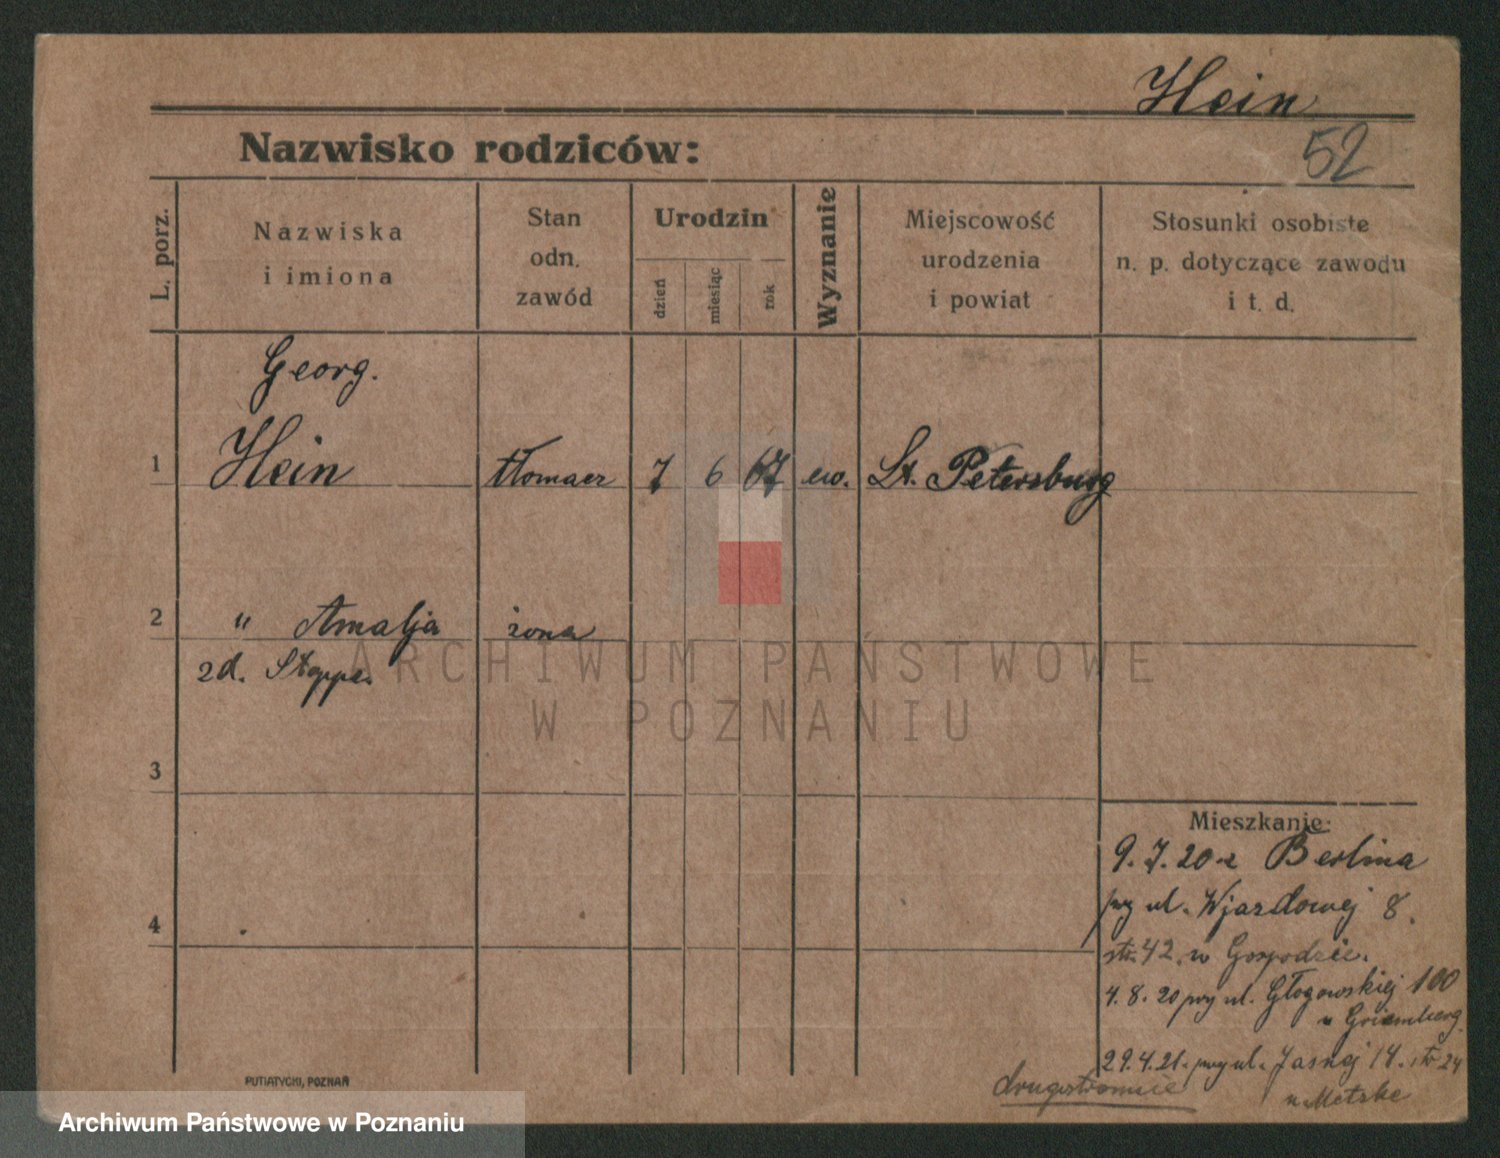 Hein
52
Nazwisko rodziców:
L. porz.
Nazwiska
i imiona
Stan
odn.
zawód
Urodzin
dzień
miesiąc
rok
Wyznanie
Miejscowość
urodzenia
i powiat
Stosunki osobiste
n. p. dotyczące zawodu
i t. d.
Georg.
1 Hein tłomacz 7 6 67 ew. St. Petersburg
2 " Amalja żona
zd. Stoppe.
3
4
Mieszkanie:
9. 7. 20 z Berlina
przy ul. Wjazdowej 8.
str. 42. w Gospodzie.
4. 8. 20 przy ul. Głogowskiej 100
u Griemberg.
29.4.21. przy ul. Jasnej 14. str 24
u Metzke
drugostronnie
PUTIATYCKI, POZNAŃ
ARCHIWUM PAŃSTWOWE
W POZNANIU
Archiwum Państwowe w Poznaniu